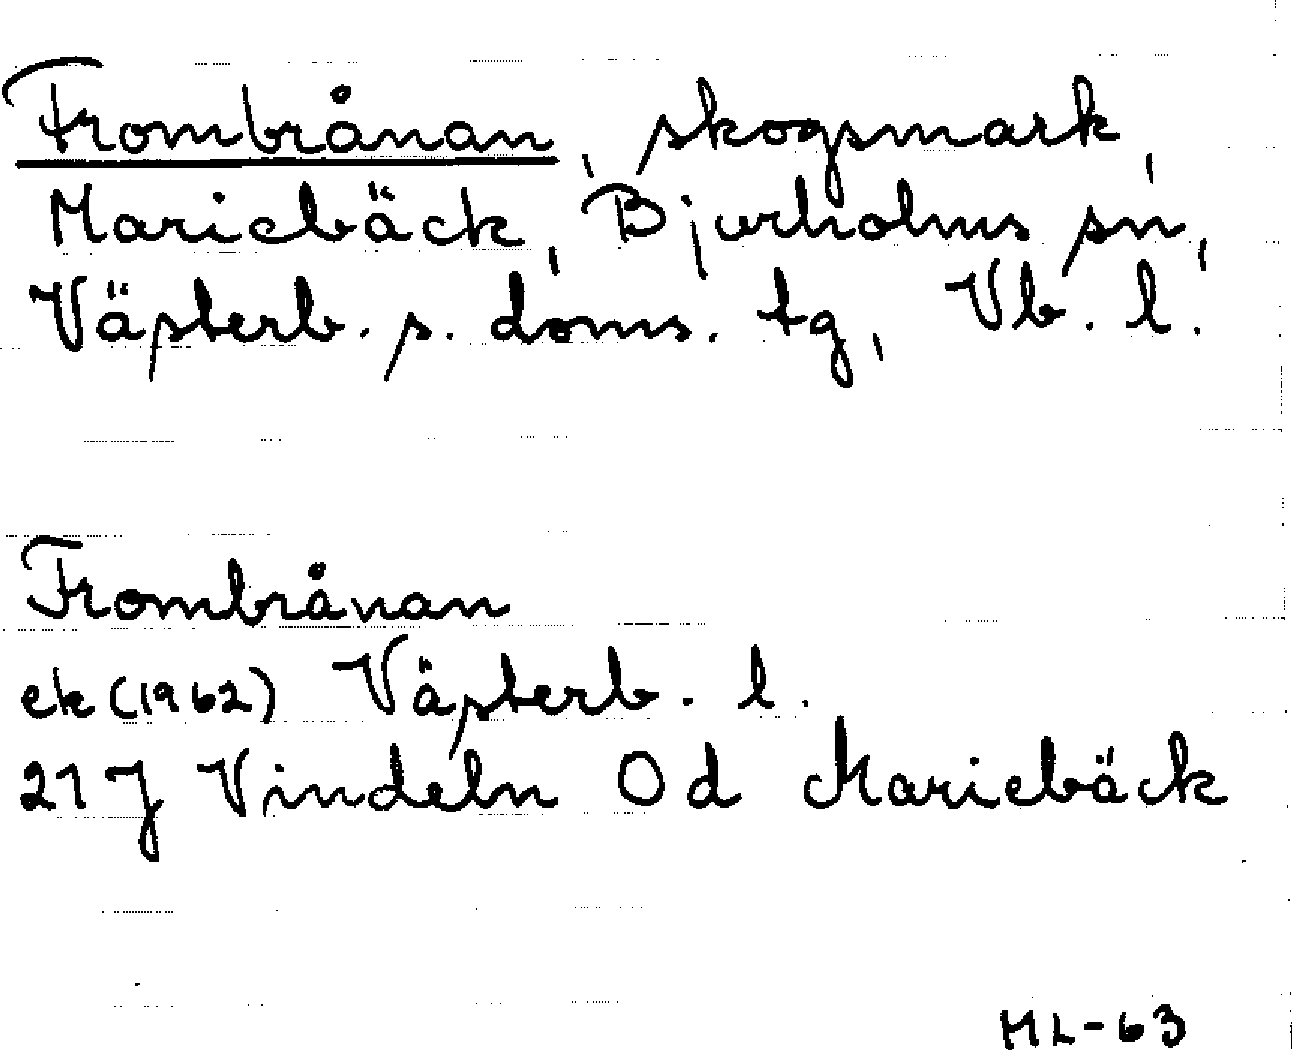 Frombrånan, skogsmark,
Mariebäck, Bjurholms sn,
Västerb. s. doms. tg, Vb. l.
Frombrånan
ek (1962) Västerb. l.
21 J Vindeln 0 d Mariebäck
ML-63